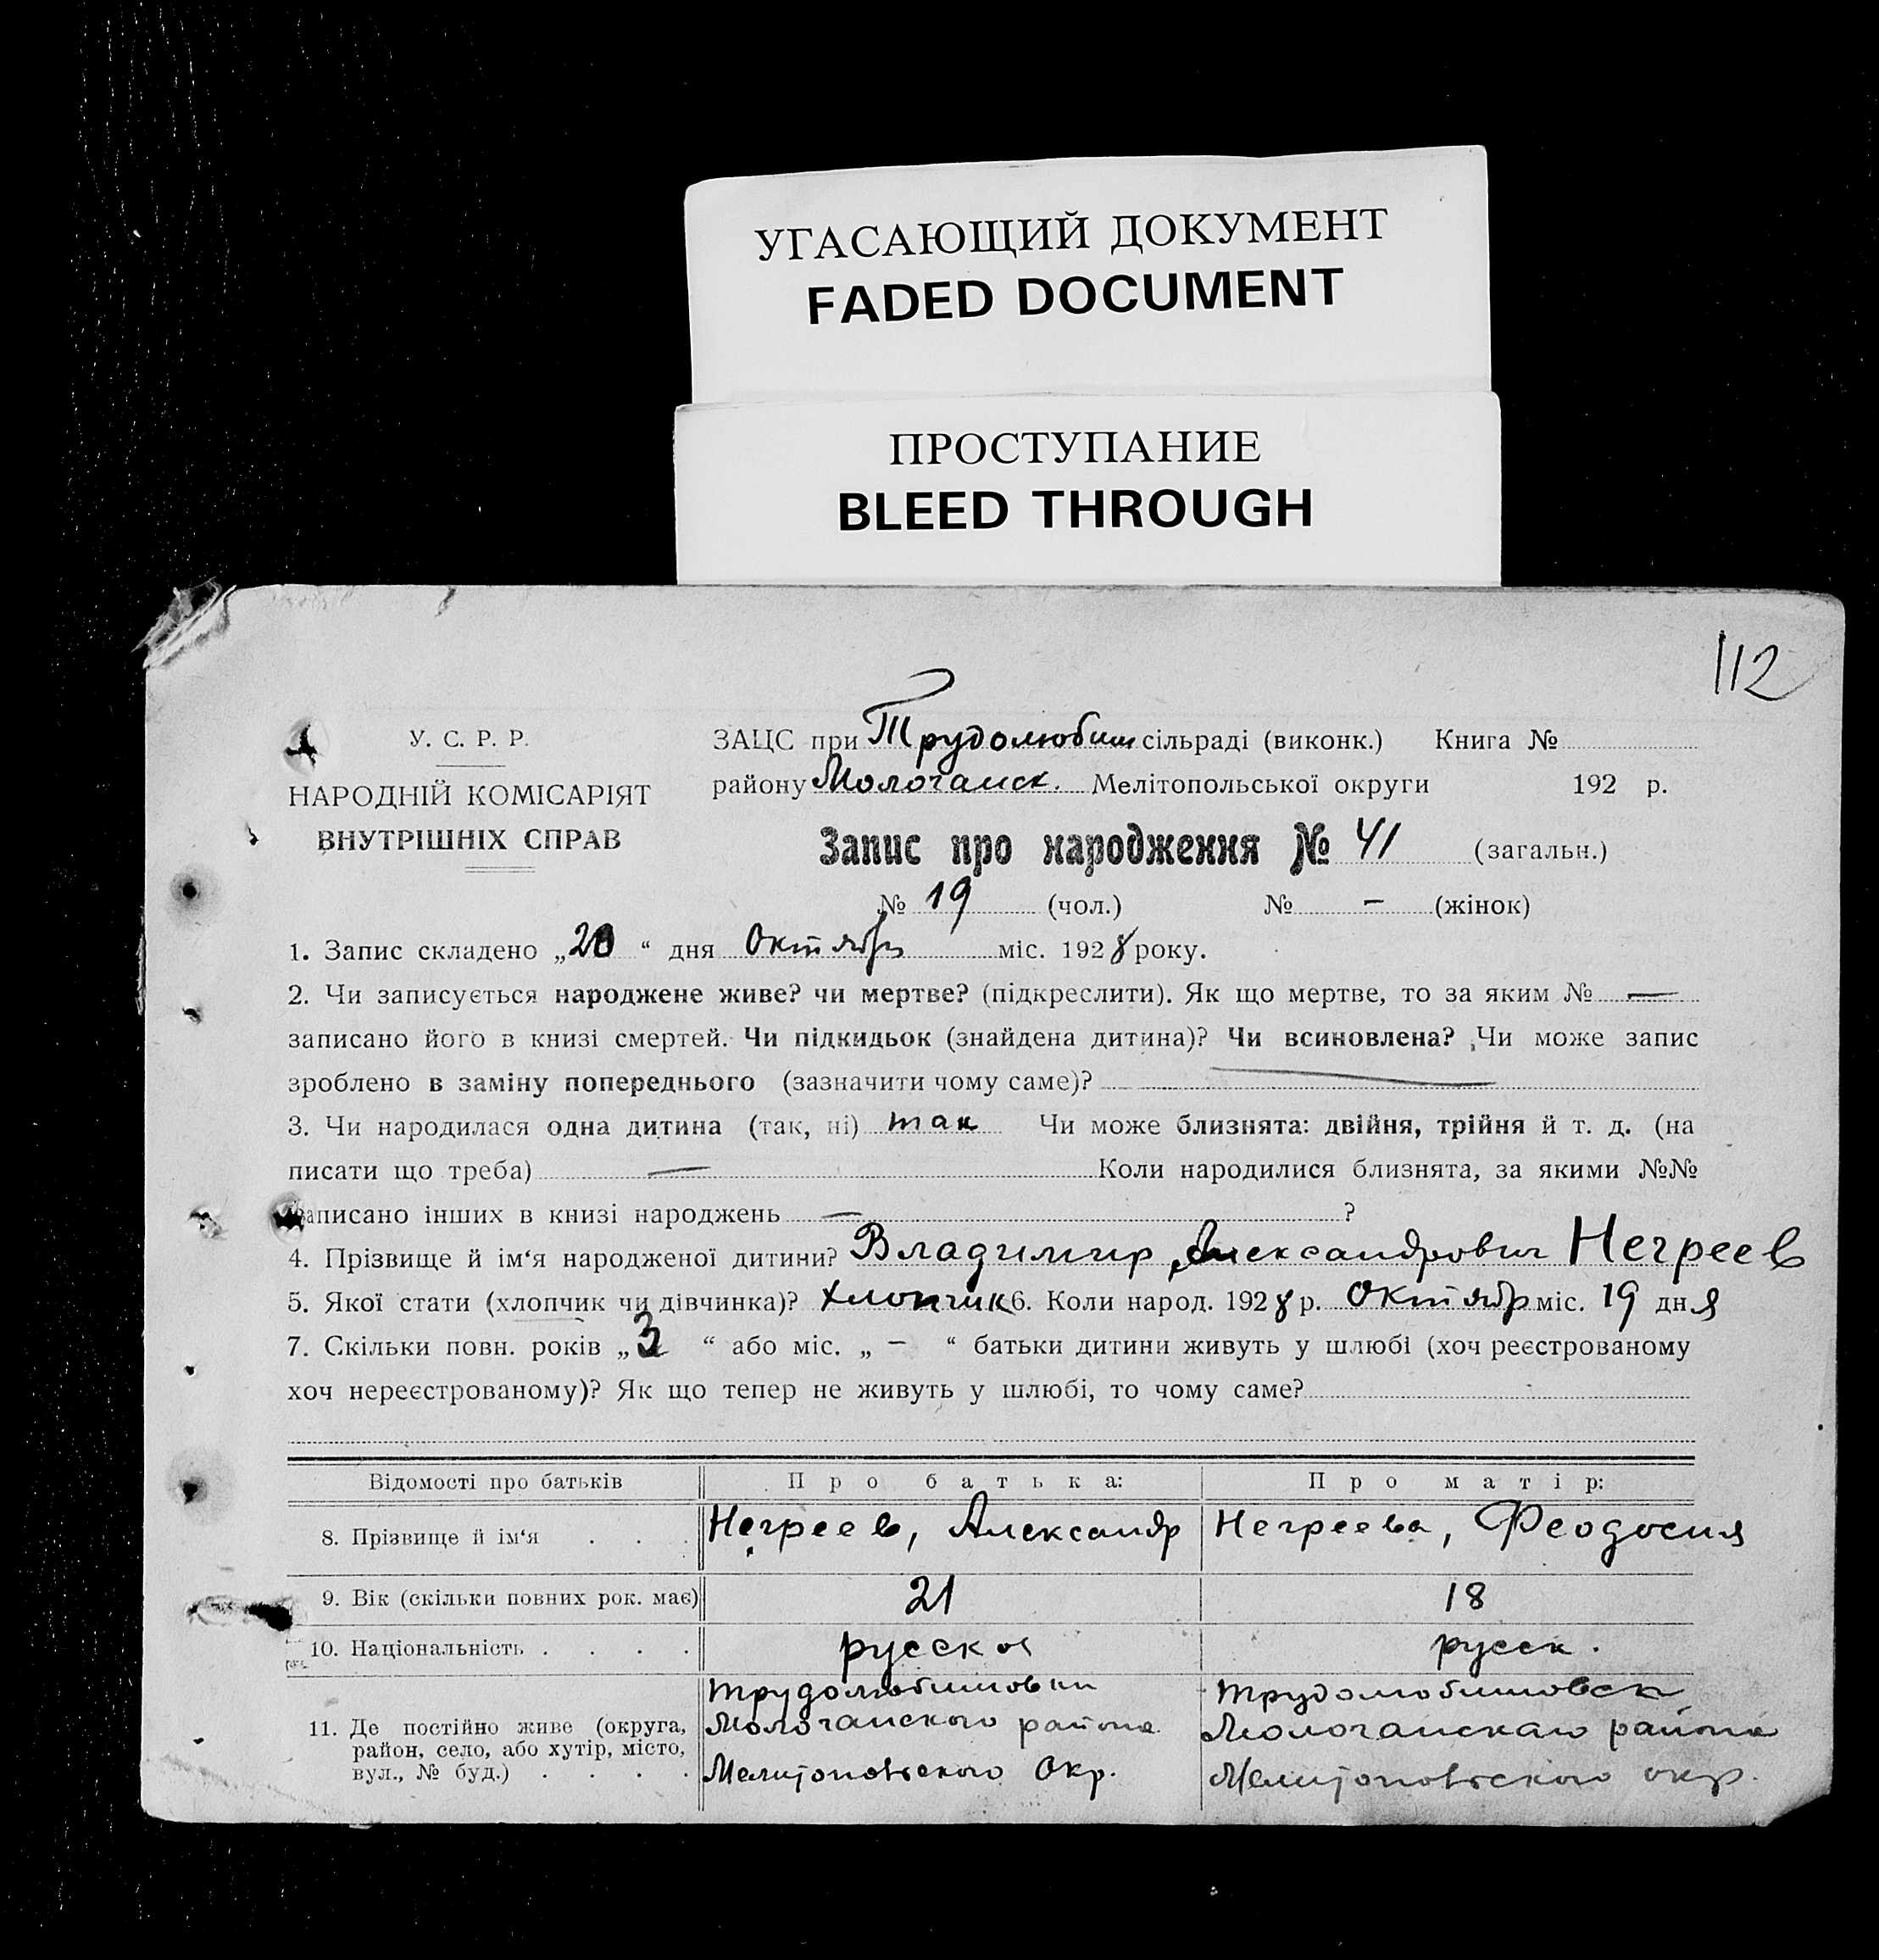 УГАСАЮЩИЙ ДОКУМЕНТ
FADED DOCUMENT
ПРОСТУПАНИЕ
BLEED THROUGH
112
У. С. Р. Р.
НАРОДНІЙ КОМІСАРІЯТ
ВНУТРІШНІХ СПРАВ
ЗАЦС при Трудолюбим сільраді (виконк.) Книга №
району Молочанск. Мелітопольської округи 192 р.
Запис про народження № 41 (загальн.)
№ 19 (чол.) № – (жінок)
1. Запис складено „20“ дня Октября міс. 1928 року.
2. Чи записується народжене живе? чи мертве? (підкреслити). Як що мертве, то за яким № —
записано його в книзі смертей. Чи підкидьок (знайдена дитина)? Чи всиновлена? Чи може запис
зроблено в заміну попереднього (зазначити чому саме)? —
3. Чи народилася одна дитина (так, ні) так Чи може близнята: двійня, трійня й т. д. (на
писати що треба) — Коли народилися близнята, за якими №№
записано інших в книзі народжень — ?
4. Прізвище й ім‘я народженої дитини? Владимир Александрович Негреев
5. Якої стати (хлопчик чи дівчинка)? хлопчик 6. Коли народ. 1928 р. Октябр міс. 19 дня
7. Скільки повн. років „3“ або міс. „–“ батьки дитини живуть у шлюбі (хоч реєстрованому
хоч нереєстрованому)? Як що тепер не живуть у шлюбі, то чому саме?
Відомості про батьків Про батька: Про матір:
8. Прізвище й ім‘я . . . Негреев, Александр Негреева, Феодосия
9. Вік (скільки повних рок. має) 21 18
10. Національність . . . . русск. русск.
11. Де постійно живе (округа, район, село, або хутір, місто, вул., № буд.) . . . .
Трудолюбимовки
Молочанского района
Мелитопольского Окр.
Трудолюбимовск
Молочанскаго района
Мелитопольского окр.